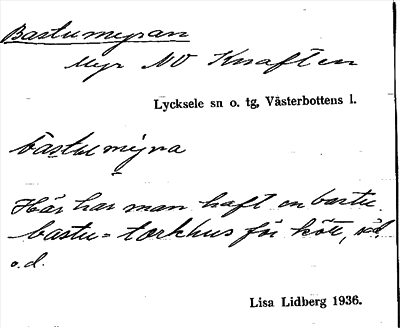 Bastumyran
Myr NV Knaften
Lycksele sn o. tg, Västerbottens l.
bastumyra
Här har man haft en bastu.
bastu = torkhus för kött, säd
o.d.
Lisa Lidberg 1936.